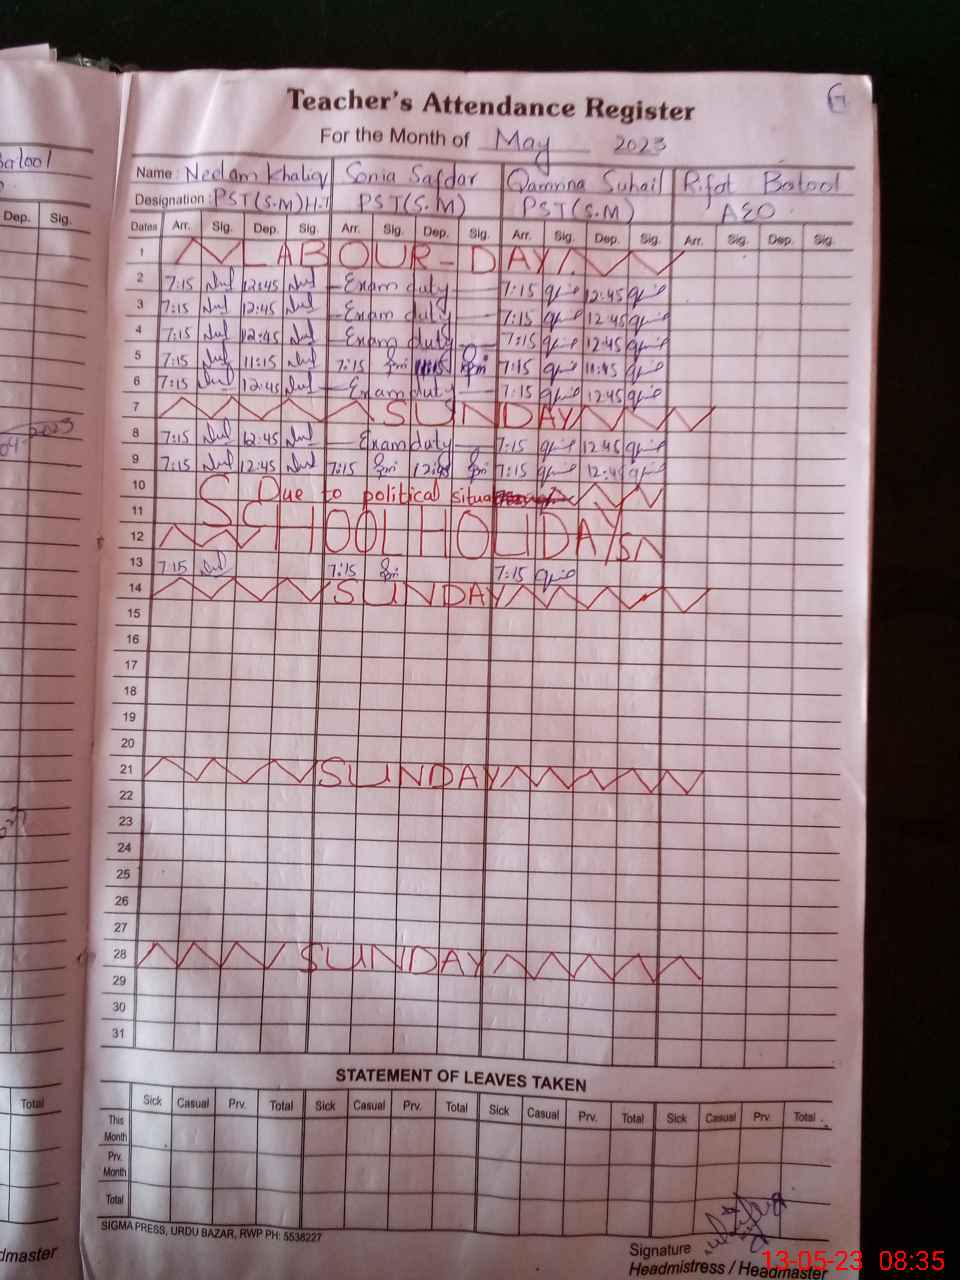 Teacher's Attendance Register
For the Month of May 2023
Name: Neelam Khaliq Sonia Safdar Qamrina Suhail Rifat Batool
Designation: PST(S.M)H.T PST(S.M) PST(S.M) AEO
Dates Arr. Sig. Dep. Sig. Arr. Sig. Dep. Sig. Arr. Sig. Dep. Sig. Arr. Sig. Dep. Sig.
1 LABOUR-DAY
2 7:15 12:45 Exam duty 7:15 12:45
3 7:15 12:45 Exam duty 7:15 12:45
4 7:15 12:45 Exam duty 7:15 12:45
5 7:15 11:15 7:15 11:15 7:15 11:45
6 7:15 12:45 Exam duty 7:15 12:45
7 SUNDAY
8 7:15 12:45 Exam duty 7:15 12:45
9 7:15 12:45 7:15 7:15 12:45
10 Due to political
11 SCHOOL HOLIDAYS
12
13 7:15 7:15 7:15
14 SUNDAY
15
16
17
18
19
20
21 SUNDAY
22
23
24
25
26
27
28 SUNDAY
29
30
31
STATEMENT OF LEAVES TAKEN
Sick Casual Prv. Total Sick Casual Prv. Total Sick Casual Prv. Total Sick Casual Prv. Total
This
Month
Prv.
Month
Total
SIGMA PRESS, URDU BAZAR, RWP PH: 5538227
Signature
Headmistress / Headmaster
13-05-23 08:35
Batool
Dep. Sig.
2023
Total
dmaster